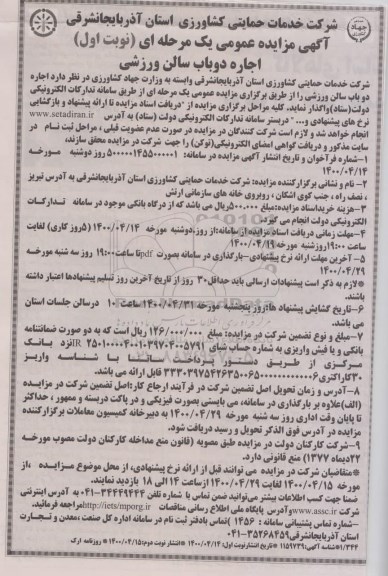 شرکت خدمات حمایتی کشاورزی استان آذربایجانشرقی
آگهی مزایده عمومی یک مرحله ای (نوبت اول)
اجاره دوباب سالن ورزشی
شرکت خدمات حمایتی کشاورزی استان آذربایجانشرقی وابسته به وزارت جهاد کشاورزی در نظر دارد اجاره
دو باب سالن ورزشی را از طریق برگزاری مزایده عمومی یک مرحله ای از طریق سامانه تدارکات الکترونیکی
دولت(ستاد)واگذار نماید. کلیه مراحل برگزاری مزایده از "دریافت اسناد مزایده تا ارائه پیشنهاد و بازگشایی
نرخ های پیشنهادی و..." دربستر سامانه تدارکات الکترونیکی دولت (ستاد) به آدرس www.setadiran.ir
انجام خواهد شد و لازم است شرکت کنندگان در مزایده در صورت عدم عضویت قبلی ، مراحل ثبت نام در
سایت مذکور و دریافت گواهی امضای الکترونیکی(توکن) را جهت شرکت در مزایده محقق سازند،
۱-شماره فرآخوان و تاریخ انتشار آگهی مزایده در سامانه: روز دوشنبه مورخه
۱۴۰۰/۰۴/۱۴
۲- نام و نشانی برگزارکننده مزایده: شرکت خدمات حمایتی کشاورزی استان آذربایجانشرقی به آدرس تبریز
، نصف راه ، جنب کوی اشکان ، روبروی خانه های سازمانی ارتش
۳-هزینه خریداسناد مزایده:مبلغ ۵۰۰،۰۰۰ریال می باشد که از درگاه بانکی موجود در سامانه تدارکات
الکترونیکی دولت انجام می گیرد.
۴-مهلت زمانی دریافت اسناد مزایده از سامانه:از روز دوشنبه مورخه ۱۴۰۰/۰۴/۱۴ (ذروع کاری) لغایت
ساعت ۱۹:۰۰روزشنبه مورخه ۱۴۰۰/۰۴/۱۹
۵- آخرین مهلت ارائه نرخ پیشنهادی-بارگذاری در سامانه بصورت pdfتا ساعت ۱۹:۰۰ روز سه شنبه مورخه
۱۴۰۰/۰۴/۲۹
*لازم به ذکر است پیشنهادات ارسالی باید حداقل۳۰ روز از تاریخ آخرین روز تسلیم پیشنهادها اعتبار داشته
باشند.
۶-تاریخ گشایش پیشنهاد ها:روز پنجشنبه مورخه ۱۴۰۰/۰۴/۳۱ ساعت ۱۰ درسالن جلسات استان
می باشد.
۷-مبلغ و نوع تضمین شرکت در مزایده: مبلغ ۱۲۶/۰۰۰/۰۰۰ ریال است که به دو صورت ضمانتنامه
بانکی و یا فیش واریزی به شماره حساب شبای نزد بانک
مرکزی از طریق دستور پرداخت ساتنا با شناسه واریز
۳۰کاراکتری قابل ارائه می باشد.
۸-آدرس و زمان تحویل اصل تضمین شرکت در فرآیند ارجاع کار:اصل تضمین شرکت در مزایده
(الف)علاوه بر بارگذاری در سامانه، می بایستی بصورت فیزیکی و در پاکت دربسته و ممهور ، حداکثر
تا پایان وقت اداری روز سه شنبه مورخه ۱۴۰۰/۰۴/۲۹ به دبیرخانه کمیسیون معاملات برگزارکننده
مزایده در آدرس فوق الذکر تحویل و رسید دریافت شود.
۹-شرکت کارکنان دولت در مزایده طبق مصوبه (قانون منع مداخله کارکنان دولت مصوب مورخه
۲۲دیماه ۱۳۳۷) منع قانونی دارد.
*متقاضیان شرکت در مزایده می توانند قبل از ارائه نرخ پیشنهادی، از محل موضوع مزایده ،از
مورخه ۱۴۰۰/۰۴/۱۵ لغایت ۱۴۰۰/۰۴/۲۹ ازساعت ۱۴ الی ۱۸ بازدید نمایند.
ضمنا جهت کسب اطلاعات بیشتر می‌توانید ضمن تماس با شماره تلفن ۳۴۴۴۹۴۴۴-۰۴۱ به آدرس اینترنتی
شرکت www.assc.ir وآدرس پایگاه ملی اطلاع رسانی مناقصات http://iets/mporg.irمراجعه فرمائید.
-شماره تماس پشتیبانی سامانه : ۱۴۵۶ )تماس بادفتر ثبت نام در سامانه اداره کل صنعت ،معدن و تجارت
استان آذربایجانشرقی۳۵۲۶۸۴۵۹-۰۴۱
۱/۳۴۴ *شناسه آگهی:۱۱۵۹۷۳۹ *تاریخ انتشارنوبت اول: ۱۴۰۰/۰۴/۱۴ *انتشارنوبت دوم:۱۴۰۰/۰۴/۱۵ *روزنامه ارک